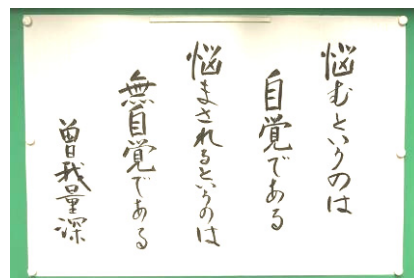 悩むというのは
自覚である
悩まされるというのは
無自覚である
曽我量深